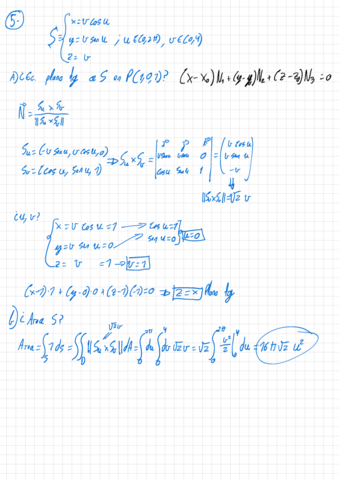 5.-
S = { x = v cos u
y = v sen u ; u ∈ (0, 2π), v ∈ (0, 4)
z = v
a) ¿Ec. plano tg a S en P(1,0,1)? (x-x₀)N₁+(y-y₀)N₂+(z-z₀)N₃=0
N = Su x Sv / ||Su x Sv||
Su = (-v sen u, v cos u, 0)
Sv = (cos u, sen u, 1)
⇒ Su x Sv = | i j k ; -v sen u v cos u 0 ; cos u sen u 1 | = ( v cos u ; v sen u ; -v )
||Su x Sv|| = √2 v
¿u, v?
x = v cos u = 1 → cos u = 1
y = v sen u = 0 → sen u = 0 u=0
z = v = 1 → v=1
(x-1)·1+(y-0)·0+(z-1)(-1)=0 ⇒ z=x Plano tg
b) ¿Área S?
√2v
Area = ∫_S 1 ds = ∬_D ||Su x Sv|| dA = ∫_0^2π du ∫_0^4 dv √2 v = √2 ∫_0^2π v²/2 |_0^4 du = 16π√2 u²